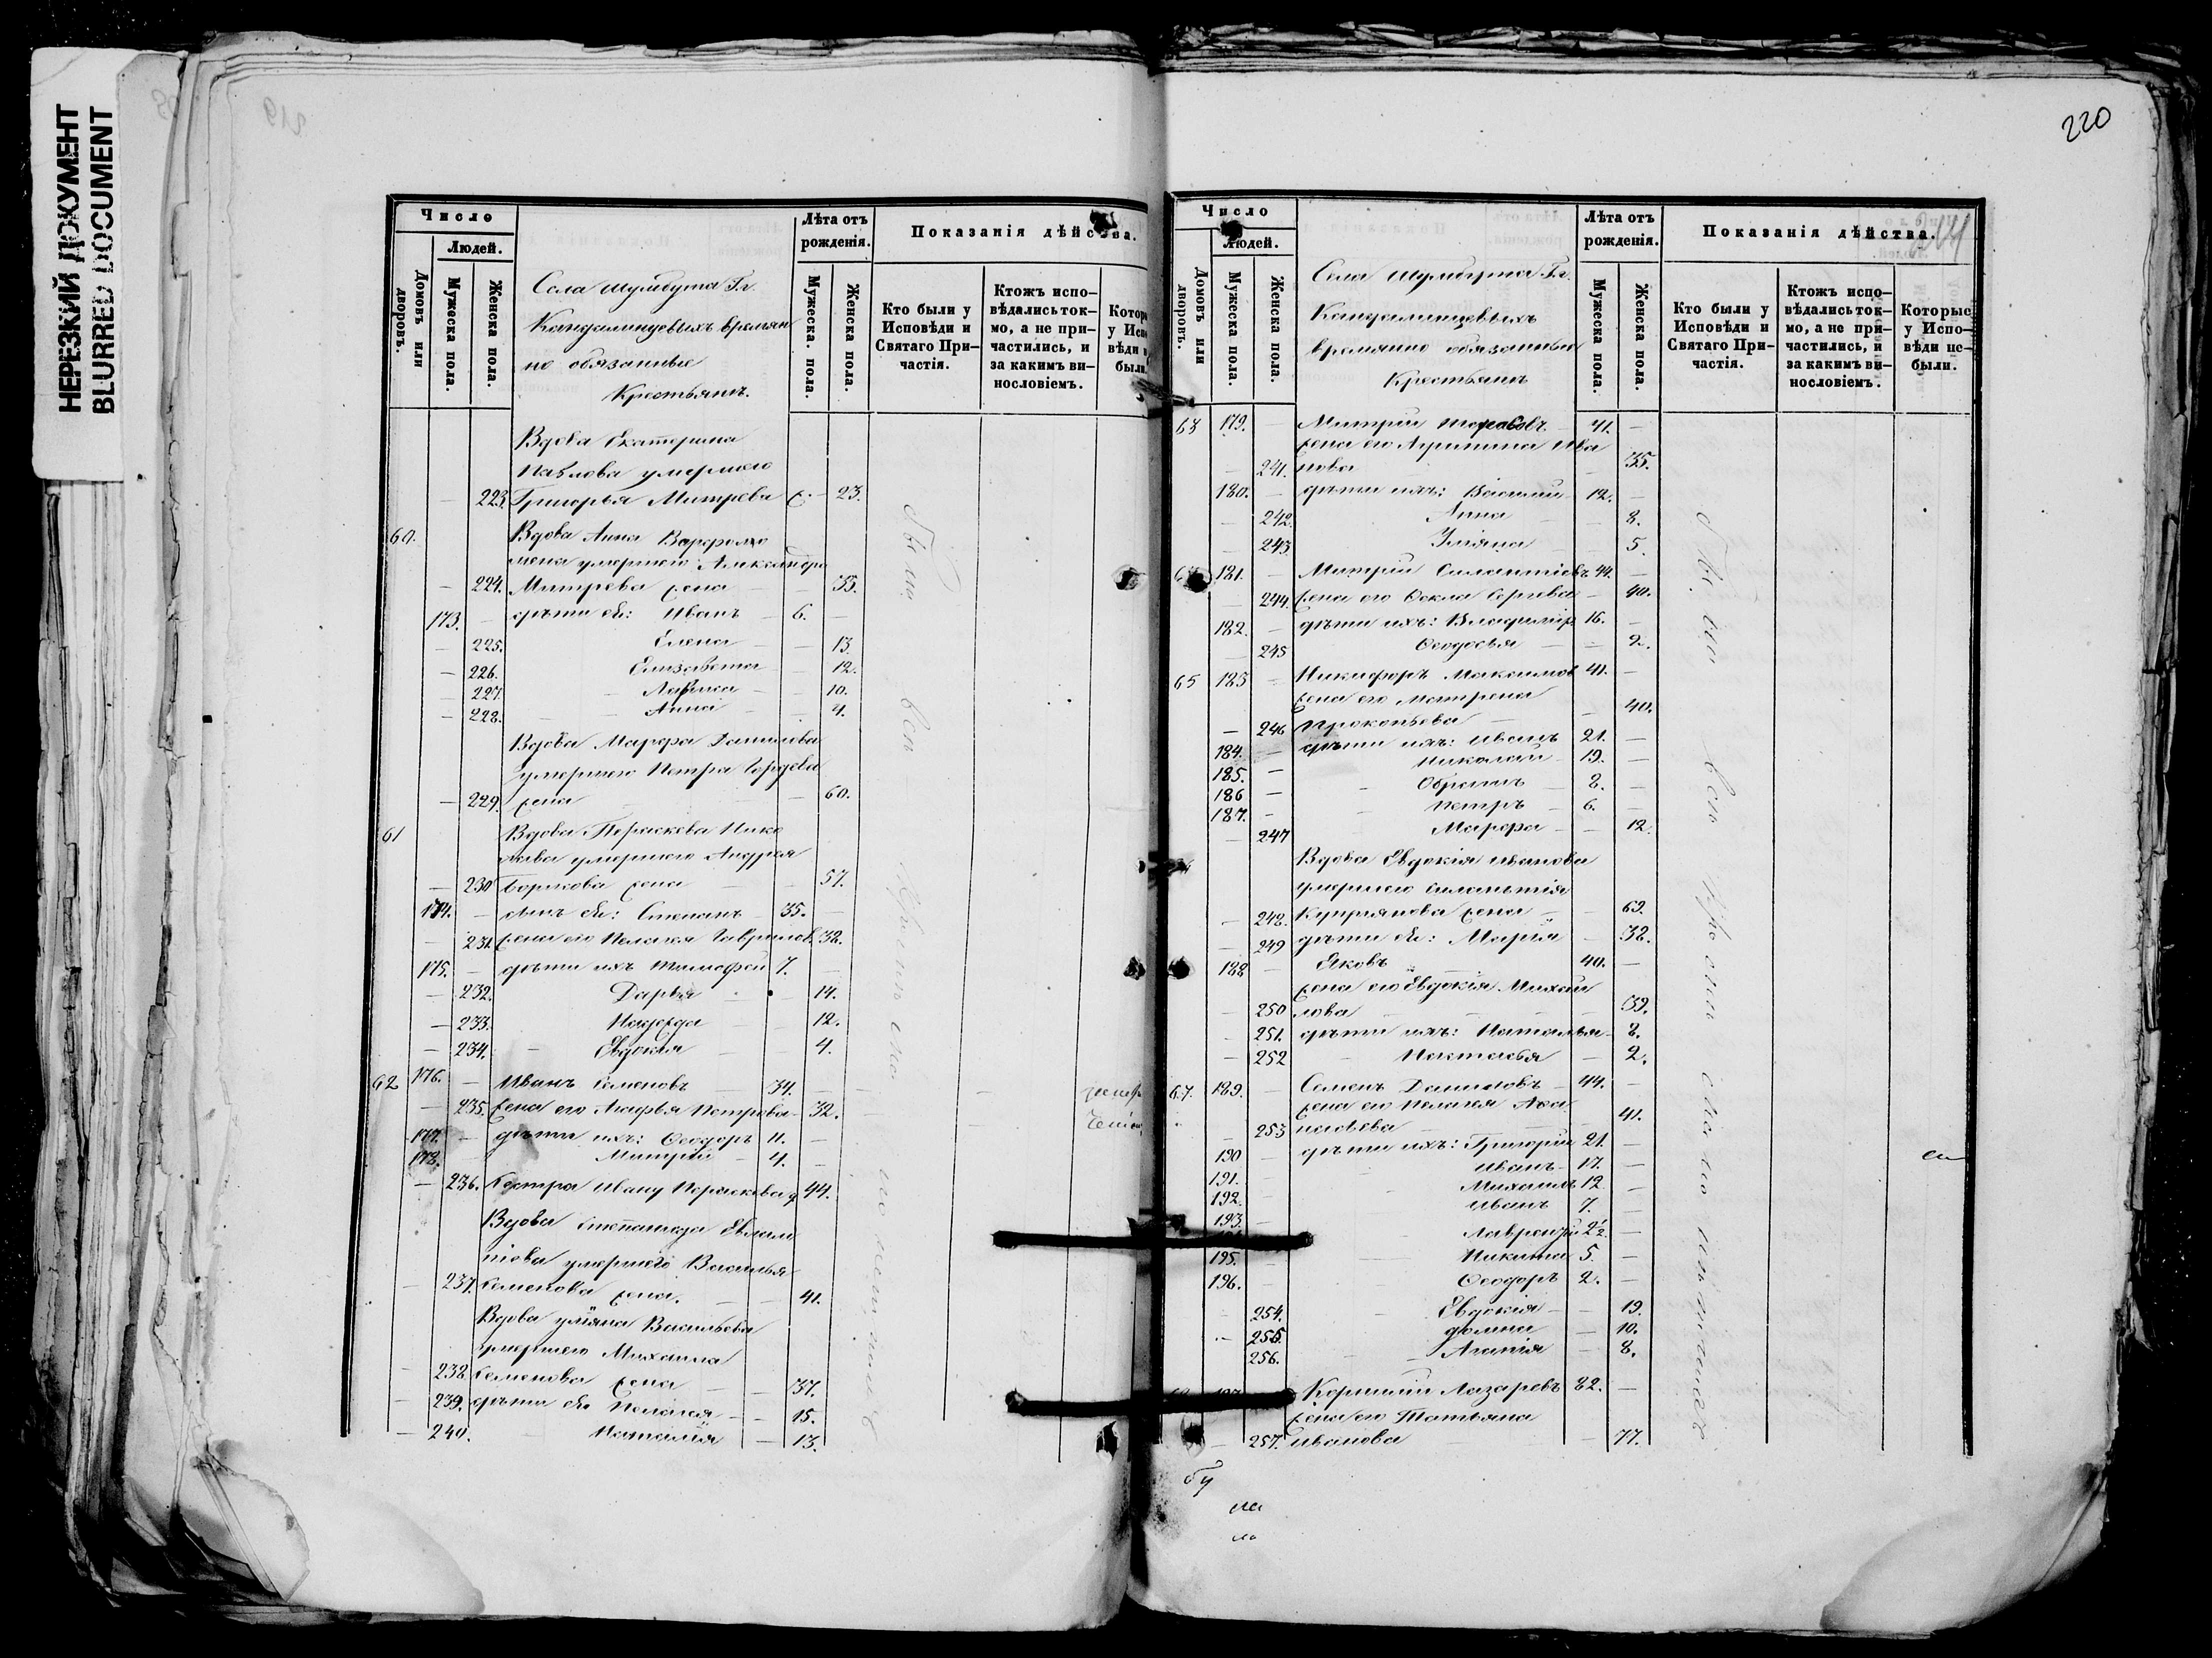 НЕРЕЗКИЙ ДОКУМЕНТ
BLURRED DOCUMENT
219
Число
Людей.
Домовъ или дворовъ.
Мужеска пола.
Женска пола.
Села Шумбута Гг.
Кандалинцевыхъ времян
но обязанные
Крестьянъ.
Лѣта отъ рожденія.
Мужеска пола.
Женска пола.
Показанія дѣйства.
Кто были у Исповѣди и Святаго При-
частія.
Ктожъ испо-
вѣдались ток-
мо, а не при-
частились, и
за какимъ ви-
нословіемъ.
Вдова Екатерина
Павлова умершего
— 223. Григорья Митрева ж. — 23.
60. Вдова Анна Варфоломе
мена умершего Александра
— 224. Митрева жена — 33.
173. — дѣти ея: Иванъ — 6. —
— 225. Елена — 13.
— 226. Елизавета — 12.
— 227. — 10.
— 228. Анна — 4.
Вдова Марфа Данилова
умершего Петра Гордева
— 229. жена — 60.
61 Вдова Параскева Нико
лаева умершего Андрея
— 230 Борисова жена — 57.
174. — сынъ ея: Степанъ — 35. —
— 231. жена его Пелагея Гаврилов. 32.
175. — дѣти ихъ Тимофей 7. —
— 232. Дарья — 14.
— 233. Надежда — 12.
— 234. Евдокия — 4.
62 176. — Иванъ Семеновъ 34. —
— 235. жена его Агафья Петрова — 32.
177. — дѣти ихъ: Ѳеодоръ 11. —
178. Митрий — 4. —
— 236. Сестра Ивану Параскева д. 44.
Вдова Степанида Евлам
піева умершего Василья
— 237. Семенова жена. — 41.
Вдова Уліяна Васильева
умершего Михаила
— 238. Семенова жена — 37.
— 239. дѣти ея Пелагея — 15.
— 240. Наталія — 13.
Были
всѣ
220
214
Число
Людей.
Домовъ или дворовъ.
Мужеска пола.
Женска пола.
Села Шумбута Гг.
Кандалинцевыхъ
времянно обязанныя
Крестьянъ
Лѣта отъ рожденія.
Мужеска пола.
Женска пола.
Показанія дѣйства.
Кто были у Исповѣди и Святаго При-
частія.
Ктожъ испо-
вѣдались ток-
мо, а не при-
частились, и
за какимъ ви-
нословіемъ.
Которые у Испо-
вѣди не-
были.
63 179. — Митрий — 41. —
жена его Агрипина Ива
— 241. нова — 35.
180. — дѣти ихъ: Василий 12. —
— 242. Анна — 8.
— 243 Уляна — 5.
181. — Митрий Силантіевъ 44. —
— 244. жена его Ѳекла Сергева — 40.
182. — дѣти ихъ: Владиміръ 16. —
— 245 Ѳеодосья — 2.
65 183 — Никифоръ Максимов 41. —
жена его Матрена 40.
— 246 Прокопьева —
184. — дѣти ихъ: Иванъ 21. —
185. — Николай 19. —
186 — Ефремъ 8. —
187. — Петръ — 6. —
— 247 Марфа — 12.
Вдова Евдокія Иванова
умершего Силантія
— 248. Куприянова жена — 63.
— 249 дѣти ея: Марія — 38.
188 — Яковъ 40. —
жена его Евдокія Михай
— 250 лова — 39.
— 251. дѣти ихъ: Наталья — 8.
— 252 Настасья — 2.
67. 189. — Семенъ Даниловъ — 44. —
жена его Пелагея Ѳа 41.
— 253
190 — дѣти ихъ: Григорий 21. —
191. — Иванъ — 17. —
192. — Михаилъ 12 —
193. — Иванъ 7. —
Лаврентій 2½. —
195. — Никита 5. —
196. — Ѳеодоръ 2. —
— 254. Евдокія — 19.
— 255. Домна — 10.
256. Агапія — 8.
Корнилий Лазаревъ 82. —
жена его Татьяна
— 257. Иванова — 77.
Были
всѣ